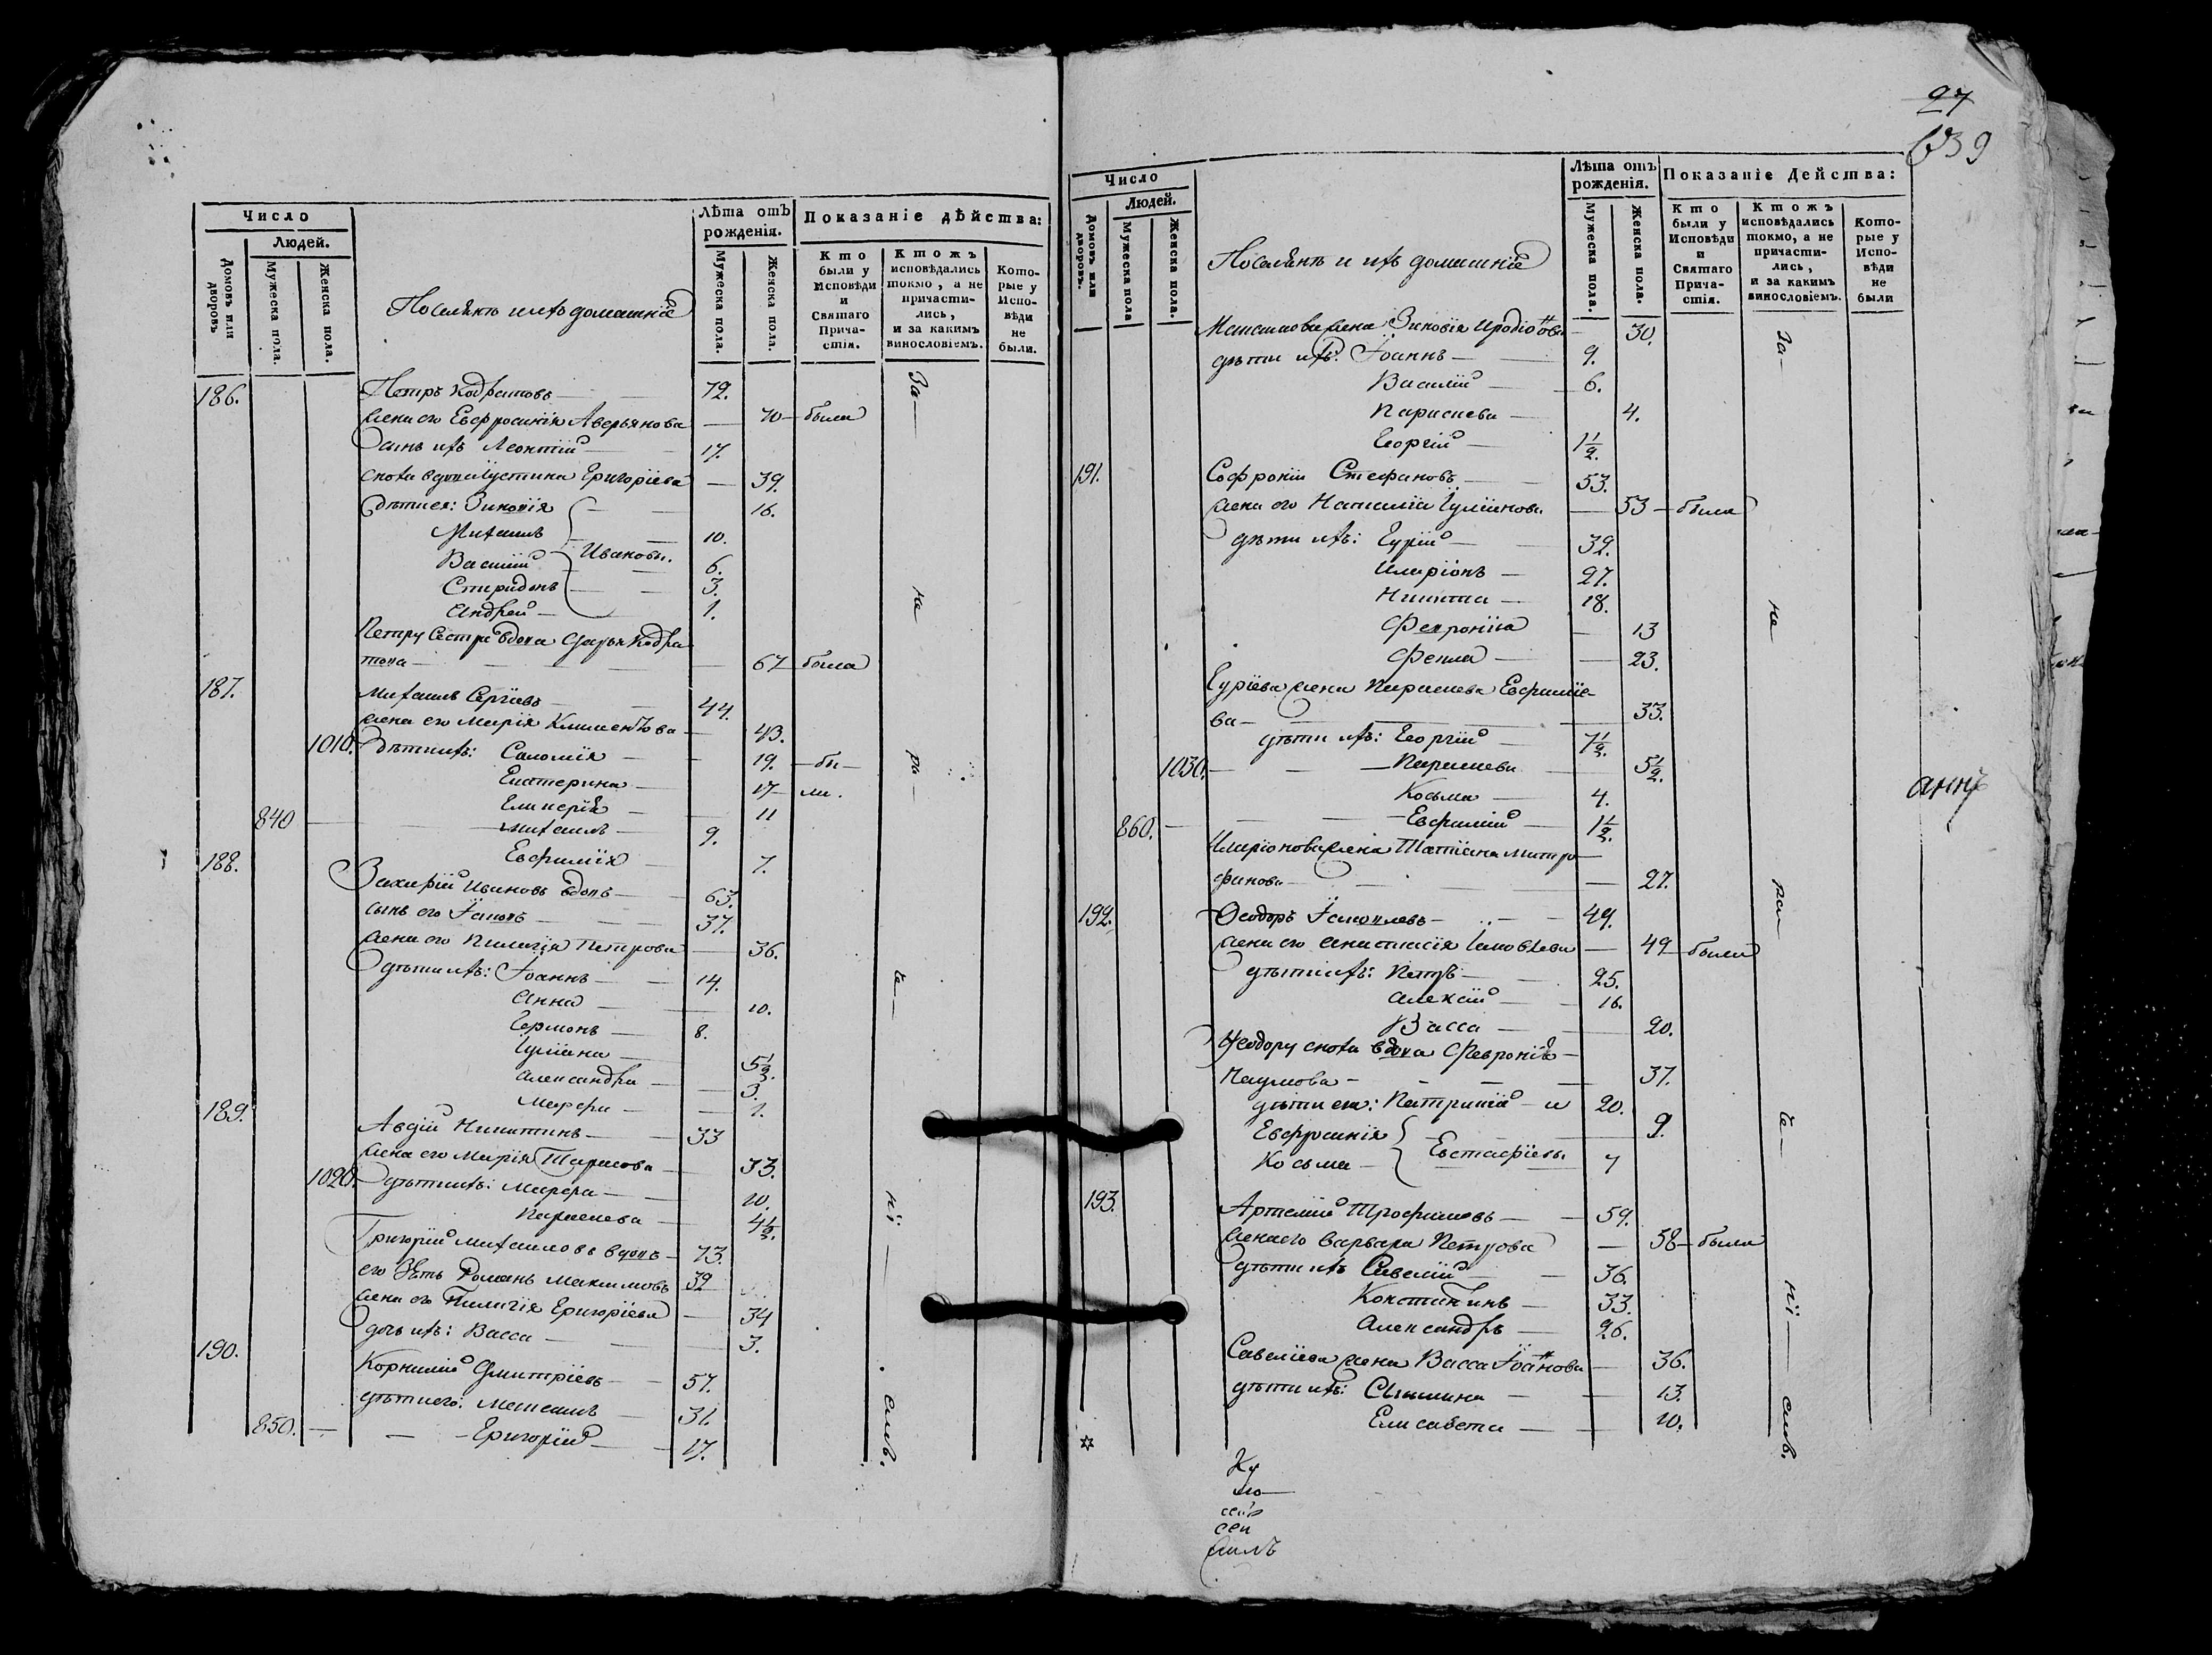 27
639
Число
Людей.
Домовъ или дворовъ
Мужеска пола.
Женска пола.
Поселянѣ и ихъ домашніе
Лѣта отъ рожденія.
Мужеска пола.
Женска пола.
Показаніе дѣйства:
Кто были у Исповѣди и Святаго Прича- стія.
Ктожъ исповѣдались токмо, а не причасти- лись, и за какимъ винословіемъ.
Кото- рые у Испо- вѣди не были.
186. Петръ Кодратовъ 72. За
жена его Евфросинія Аверьянова 70 были
сынъ ихъ Леонтій 17.
сноха вдова Іустина Григоріева 39.
дѣти ея: Зиновія 16.
Михаилъ 10.
Василій Ивановы. 6.
Спиридонъ 3.
Андрей 1. не
Петру сестра вдова Дарья Кодра
това 67 была
187. Михаилъ Сергіевъ 44.
жена его Марія Климентьева 43.
1010. дѣти ихъ: Саломія 19. бы ра
Екатерина 17 ли.
Гликерія 11
840 Михаилъ 9.
Евфимія 7.
188. Захарій Ивановъ вдовъ 63.
сынъ его Іаковъ 37.
жена его Пелагія Петрова 36.
дѣти ихъ: Іоаннъ 14. че
Анна 10.
Гермонъ 8.
Іуліана 5 1/2.
Александра 3.
Марфа 1.
189. Авдій Никитинъ 33
жена его Марія Тарасова 33.
1020. дѣти ихъ: Марфа 10. ні
Параскева 4 1/2.
Григорій Михаиловъ вдовъ 73.
его Зять Романъ Максимовъ 39
жена его Пелагія Григоріева 34
дочь ихъ: Васса 3.
190. Корнилій Дмитріевъ 57.
дѣти его: Максимъ 31. емъ.
850. Григорій 17.
Число
Людей.
Домовъ или дворовъ.
Мужеска пола
Женска пола.
Поселянѣ и ихъ домашніе
Лѣта отъ рожденія.
Мужеска пола.
Женска пола.
Показаніе Действа:
Кто были у Исповѣди и Святаго Прича- стія.
Ктожъ исповѣдались токмо, а не причасти- лись, и за какимъ винословіемъ.
Кото- рые у Испо- вѣди не были
Максимова жена Зиновія Иродіонова 30. За
дѣти ихъ: Іоаннъ 9.
Василій 6.
Параскева 4.
Георгій 1 1/2.
191. Софроній Стефановъ 53.
жена его Наталія Іуліанова 53 были
дѣти ихъ: Гурій 32.
Иларіонъ 27.
Никита 18. не
Феврониа 13
Фекла 23.
Гуріева жена Параскева Евфиміе-
ва 33.
дѣти ихъ: Георгій 7 1/2.
1030. Параскева 5 1/2.
Косьма 4.
860. Евфимій 1 1/2.
Иларіонова жена Татіана Митро
фанова 27. ра
192. Ѳеодоръ Іаковлевъ 49.
жена его Анастасія Іаковлева 49 были
дѣти ихъ: Петръ 25.
Алексій 16.
Васса 20.
Ѳеодору сноха вдова Февронія
Наумова 37.
дѣти ея: Патрикій и 20. че
Евфросинія 9.
Косьма Евстафіевы 7
193. Артемій Трофимовъ 59.
жена его Варвара Петрова 58 были
дѣти ихъ Савелій 36. ні
Константинъ 33.
Александръ 26.
Савеліева жена Васса Іоаннова 36.
дѣти ихъ: 13. емъ.
Елисавета 10.